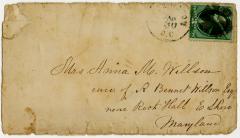 D.C.
Mrs Anna M. Willson
care of R Bennet Willson Esq
near Rock Hall E Shore
Maryland